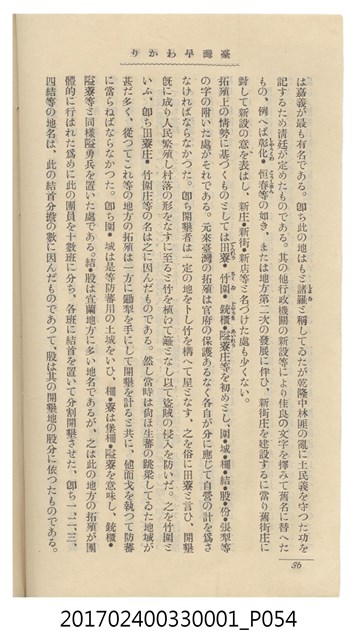 臺灣早わかり
は嘉義が最も有名である。卽ち此の地はもと諸羅と稱してゐたが乾隆中林匪の亂に土民義を守つた功を
記するため淸廷が定めたものである。其の他行政機關の新設等により佳良の文字を擇みて舊名に替へた
もの、例へば彰化・恒春等の如き、または地方第二次の發展に伴ひ、新街庄を建設するに當り舊街庄に
對して新設の意を表はし、新庄・新街・新店等と名づけた處も少くない。
拓殖上の情勢に基づくものとしては田寮・竹圍・銃櫃・隘寮庄等を初めとし、圍・城・柵・結・股・份・張犁等
の字の附いた處がそれである。元來臺灣の拓殖は官府の保護あるなく各自が分に應じて自營の計を爲さ
なければならなかつた。卽ち開墾者は一定の地を卜し竹を構へて屋となす、之を俗に田寮と言ひ、開墾
旣に成り人民繁殖し村落の形をなすに至ると竹を植わて籬となし以て盜賊の侵入を防いだ。之を竹圍と
いふ、卽ち田寮庄・竹圍庄等の名は之に因んだものである。然し當時は尙ほ生蕃の跳梁してゐた地域が
甚だ多く、從つてこれ等の地方の拓殖は一方に鋤犁を手にして開墾を計ると共に、他面戈を執つて防蕃
に當らねばならなかつた。卽ち圍・城は是等防蕃用の土城をいひ、柵・寮は堡柵・隘寮を意味し、銃櫃・
隘寮等と同樣隘勇兵を置いた處である。結・股は宜蘭地方に多い地名であるが、之は此の地方の拓殖が團
體的に行はれた爲めに此の團員を十數班に分ち、各班に結首を置いて分割開墾させた、卽ち一、二、三、
四結等の地名は、此の結首分擔の數に因んだものであつて、股は其の開墾地の股分に依つたものである。
36
201702400330001_P054